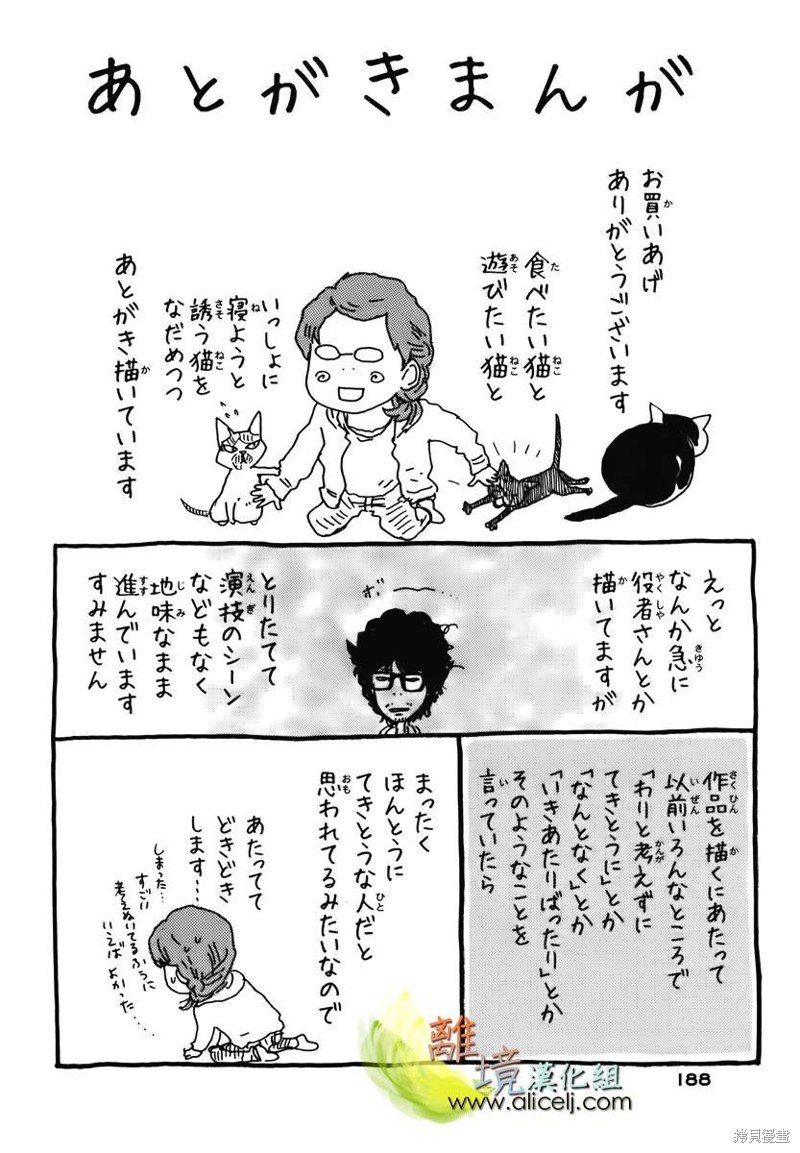 あとがきまんが
お買いあげ
ありがとうございます
食べたい猫と
遊びたい猫と
いっしょに
寝ようと
誘う猫を
なだめつつ
あとがき描いています
えっと
なんか急に
役者さんとか
描いてますが
ボー
とりたてて
演技のシーン
などもなく
地味なまま
進んでいます
すみません
作品を描くにあたって
以前いろんなところで
「わりと考えずに
てきとうに」とか
「なんとなく」とか
「いきあたりばったり」とか
そのようなことを
言っていたら
まったく
ほんとうに
てきとうな人だと
思われてるみたいなので
あたってて
どきどき
します…
しまった…
すごい
考えぬいてるふうに
いえば よかった……
離境漢化組
www.alicelj.com
188
拷貝漫畫